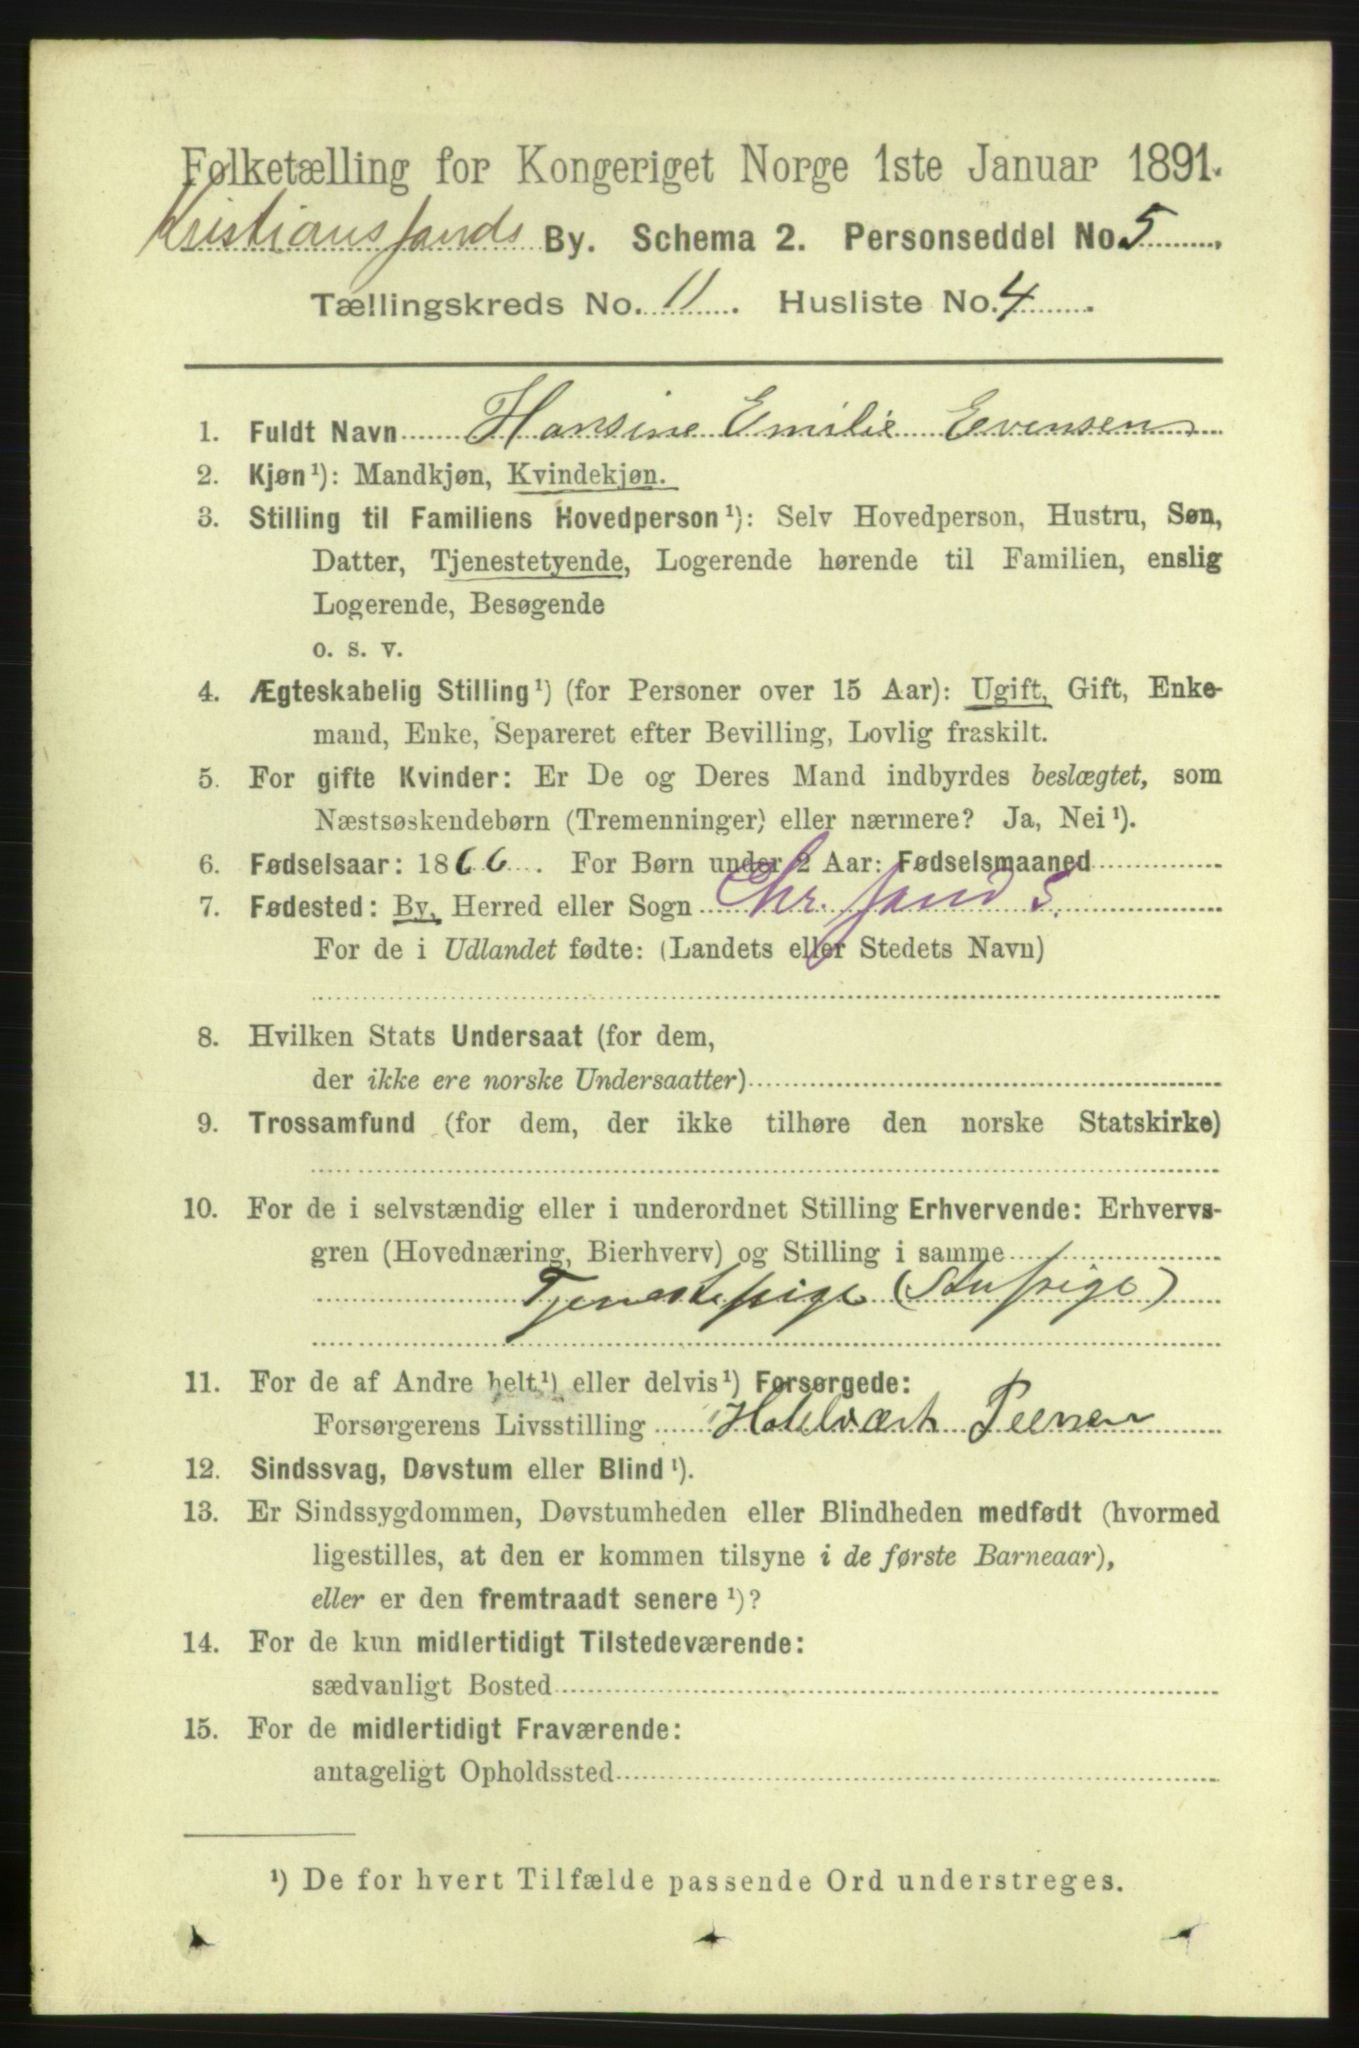 Folketælling for Kongeriget Norge 1ste Januar 1891.
Kristianssands By. Schema 2. Personseddel No. 5.
Tællingskreds No. 11. Husliste No. 4.
1. Fuldt Navn Hansine Emilie Evensen
2. Kjøn¹): Mandkjøn, Kvindekjøn.
3. Stilling til Familiens Hovedperson¹): Selv Hovedperson, Hustru, Søn,
Datter, Tjenestetyende, Logerende hørende til Familien, enslig
Logerende, Besøgende
o. s. v.
4. Ægteskabelig Stilling¹) (for Personer over 15 Aar): Ugift, Gift, Enke-
mand, Enke, Separeret efter Bevilling, Lovlig fraskilt.
5. For gifte Kvinder: Er De og Deres Mand indbyrdes beslægtet, som
Næstsøskendebørn (Tremenninger) eller nærmere? Ja, Nei¹).
6. Fødselsaar: 1866. For Børn under 2 Aar: Fødselsmaaned
7. Fødested: By, Herred eller Sogn Chr.sand S.
For de i Udlandet fødte: (Landets eller Stedets Navn)
8. Hvilken Stats Undersaat (for dem,
der ikke ere norske Undersaatter)
9. Trossamfund (for dem, der ikke tilhøre den norske Statskirke)
10. For de i selvstændig eller i underordnet Stilling Erhvervende: Erhvervs-
gren (Hovednæring, Bierhverv) og Stilling i samme
Tjenestepige (Stuepige)
11. For de af Andre helt¹) eller delvis¹) Forsørgede:
Forsørgerens Livsstilling Hotelvært
12. Sindssvag, Døvstum eller Blind¹).
13. Er Sindssygdommen, Døvstumheden eller Blindheden medfødt (hvormed
ligestilles, at den er kommen tilsyne i de første Barneaar),
eller er den fremtraadt senere¹)?
14. For de kun midlertidigt Tilstedeværende:
sædvanligt Bosted
15. For de midlertidigt Fraværende:
antageligt Opholdssted
¹) De for hvert Tilfælde passende Ord understreges.